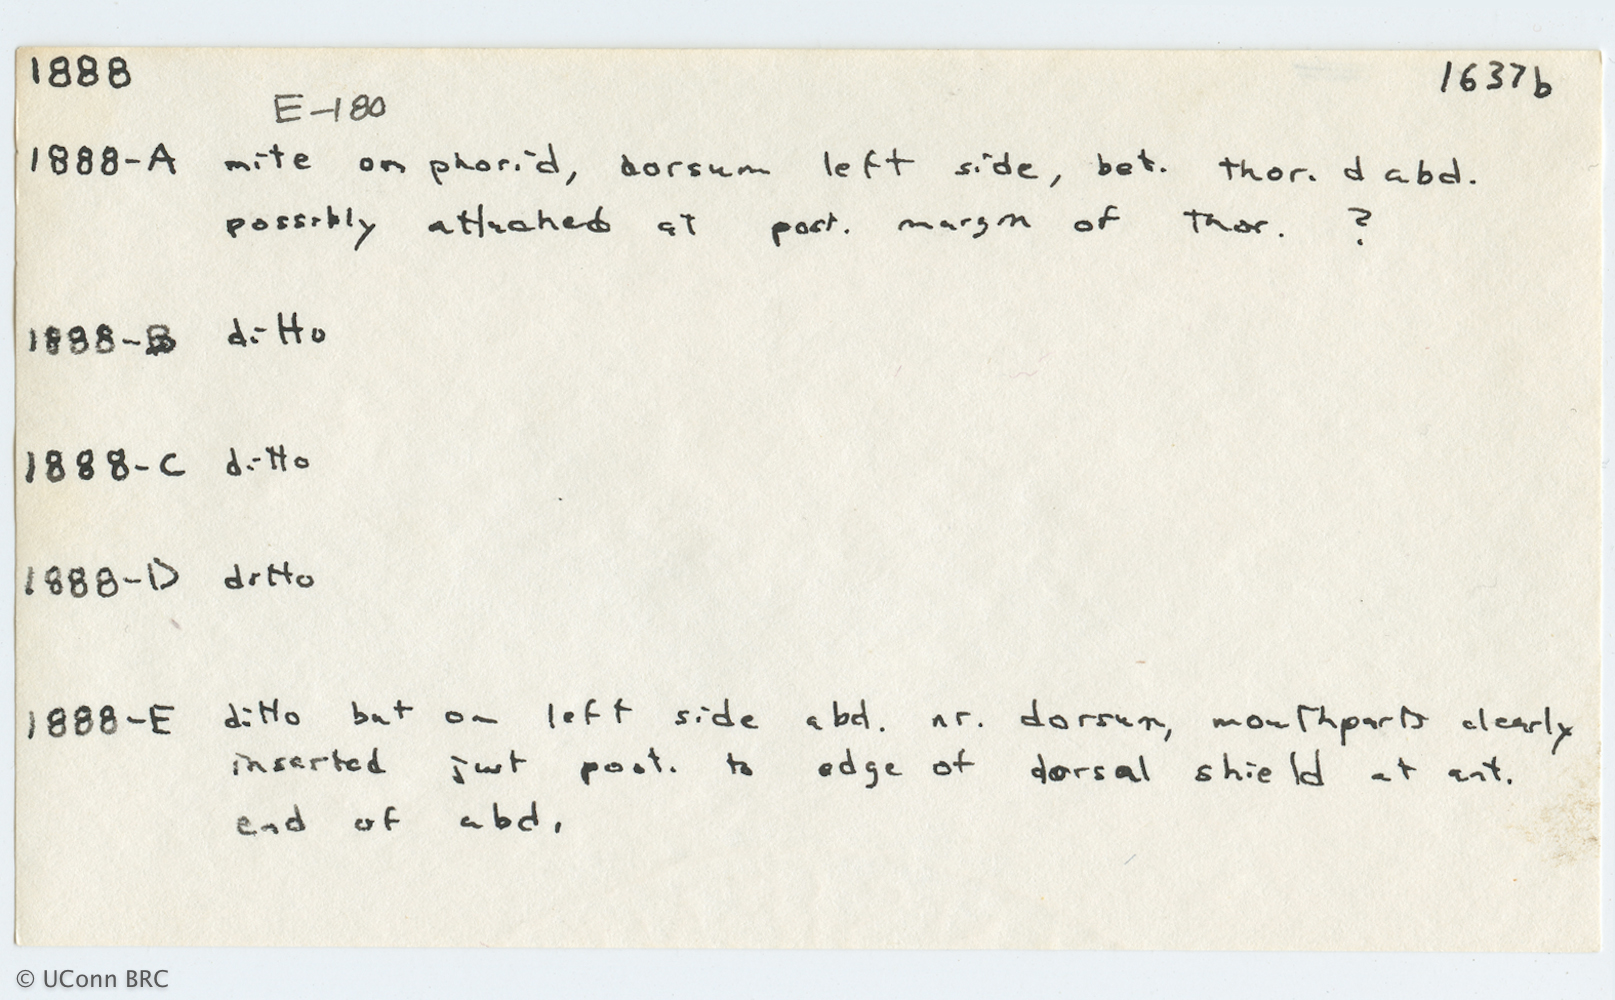 1888
1637b
E-180
1888-A mite on phorid, dorsum left side, bet. thor. & abd.
possibly attached at post. margin of thor. ?
1888-B ditto
1888-C ditto
1888-D ditto
1888-E ditto but on left side abd. nr. dorsum, mouthparts clearly
inserted just post. to edge of dorsal shield at ant.
end of abd.
© UConn BRC